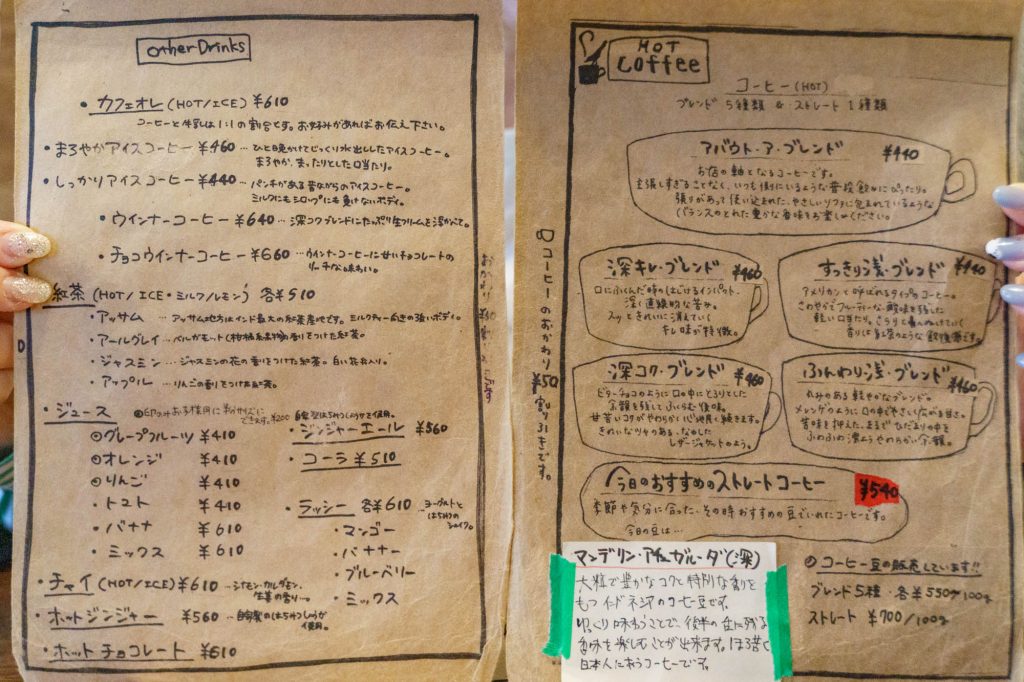 Other Drinks
・カフェオレ(HOT/ICE) ¥610
コーヒーと牛乳は1:1の割合です。お好みがあればお伝え下さい。
・まろやかアイスコーヒー ¥460 … ひと晩かけてじっくり水出ししたアイスコーヒー。
まろやか、まったりとした口当たり。
・しっかりアイスコーヒー ¥440 … パンチがある昔ながらのアイスコーヒー。
ミルクにもシロップにも負けないボディ。
・ウインナーコーヒー ¥640 … 深コクブレンドにたっぷり生クリームを浮かべて。
・チョコウインナーコーヒー ¥660 … ウインナーコーヒーに甘いチョコレートの
リッチな味わい。
紅茶 (HOT/ICE・ミルク/レモン) 各¥510
・アッサム … アッサム地方はインド最大の紅茶産地です。ミルクティー向きの強いボディ。
・アールグレイ … ベルガモット(柑橘系果物)の香りをつけた紅茶。
・ジャスミン … ジャスミンの花の香りをつけた紅茶。白い花弁入り。
・アップル … りんごの香りをつけた紅茶。
・ジュース
グレープフルーツ ¥410
オレンジ ¥410
りんご ¥410
・トマト ¥410
・バナナ ¥610
・ミックス ¥610
・ジンジャーエール ¥560
自家製はちみつしょうが使用。
・コーラ ¥510
・ラッシー 各¥610 … ヨーグルトと
はちみつの
シェイク。
・マンゴー
・バナナー
・ブルーベリー
・ミックス
・チャイ (HOT/ICE) ¥610 … シナモン・カルダモン、
生姜の香り…
・ホットジンジャー ¥560 … 自家製のはちみつしょうが
使用。
・ホットチョコレート ¥610
コーヒーのおかわり ¥50 割り引きです。
HOT
Coffee
コーヒー(HOT)
ブレンド 5種類 & ストレート 1種類
アバウト・ア・ブレンド ¥440
お店の軸となるコーヒーです。
主張しすぎることなく、いつも側にいるような普段飲みにぴったり。
張りがあって使い込まれた、やさしいソファに包まれているような
バランスのとれた豊かな香味をお楽しみください。
深キレ・ブレンド ¥460
口にふくんだ時のはじけるインパクト、
深く直線的な苦み。
スッときれいに消えていく
キレ味が特徴。
すっきり浅・ブレンド ¥440
アメリカンと呼ばれるタイプのコーヒー。
さわやかでフルーティーな酸味を残した
軽い口当たり。
深コク・ブレンド ¥460
ビターチョコのように口の中にとろりとした
余韻を残してふくらむ後味。
甘苦いコクがやわらかく心地良く続きます。
きれいなツヤのある、なめした
レザージャケットのよう。
ふんわり浅・ブレンド ¥460
丸みのある軽やかなブレンド。
メレンゲのように口の中でやさしく広がる甘さ。
苦味を抑えた、まるでひだまりの中を
ふわふわ漂うようなやわらかい余韻。
今日のおすすめのストレートコーヒー ¥540
季節や気分に合った、その時おすすめの豆でいれたコーヒーです。
今日の豆は…
マンデリン・アチェガルーダ(深)
大粒で豊かなコクと特別な香りを
もつインドネシアのコーヒー豆です。
ゆっくり味わうことで、後半の舌に残る
香味を楽しむことが出来ます。ほろ苦く
日本人に合うコーヒーです。
コーヒー豆の販売しています!!
ブレンド5種・各¥550/100g
ストレート ¥700/100g